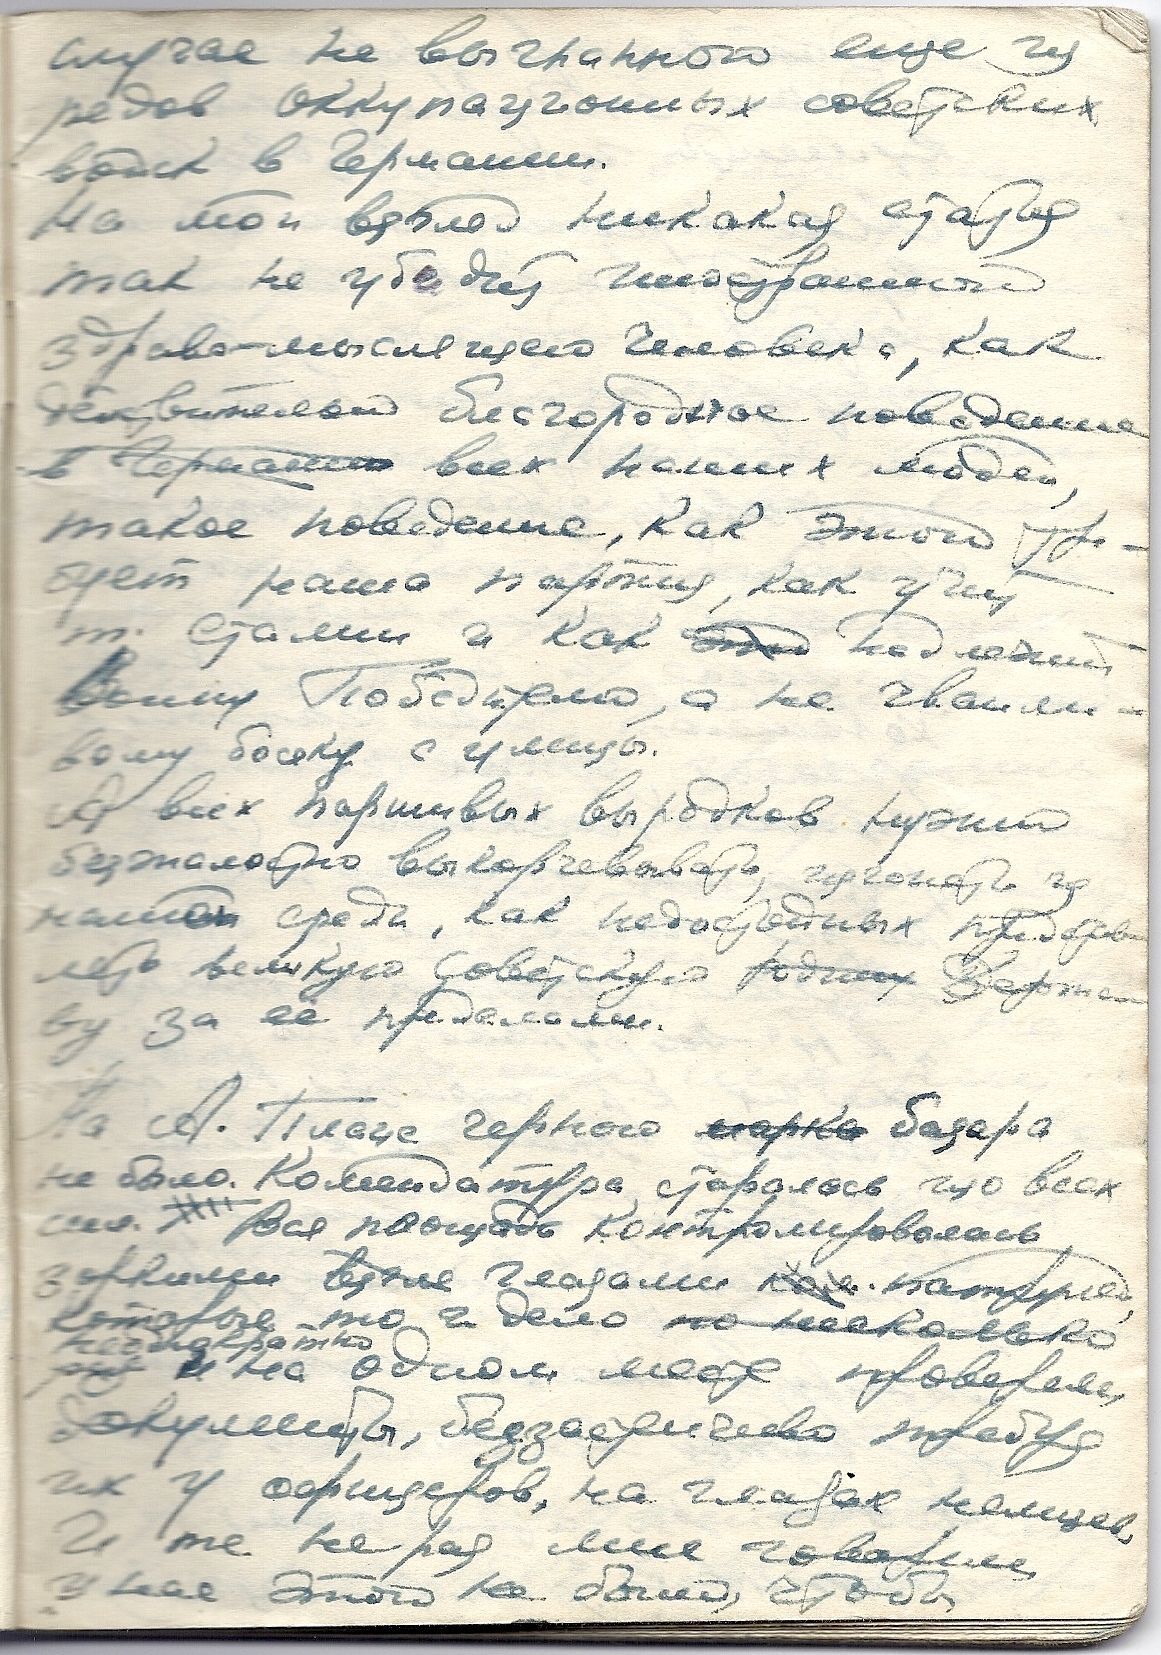 случае не выгнанного еще из
рядов оккупационных советских
войск в Германии.
На мой взгляд никакая статья
так не убедит иностранного
здраво-мыслящего человека, как
действительно благородное поведение
в Германии всех наших людей,
такое поведение, как этого тре-
бует наша партия, как учит
т. Сталин и как это надлежит
Воину Победителю, а не чванли-
вому босяку с улицы.
А всех паршивых выродков нужно
безжалостно выкорчевывать, изгонять из
нашей среды, как недостойных представ
лять великую Советскую родину Держа
ву за её пределами.
На А. Плаце черного марке базара
не было. Комендатура старалась изо всех
сил. Вся площадь контролировалась
зоркими глазами ком. патрулей,
которые то и дело по несколько
неоднократно
раз и на одном месте проверяли
документы, беззастенчиво требуя
их у офицеров, на глазах немцев.
И те не раз мне говорили
у нас этого не было, чтобы